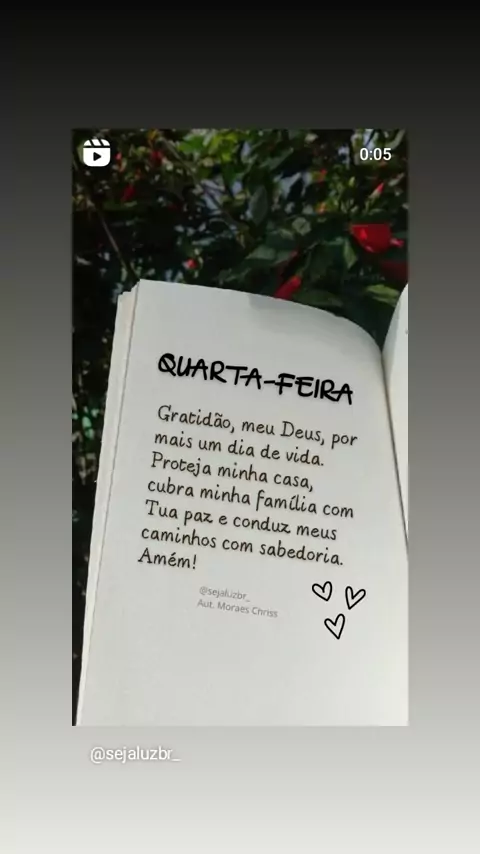 0:05
QUARTA-FEIRA
Gratidão, meu Deus, por
mais um dia de vida.
Proteja minha casa,
cubra minha família com
Tua paz e conduz meus
caminhos com sabedoria.
Amém!
@sejaluzbr_
Aut. Moraes Chriss
@sejaluzbr_